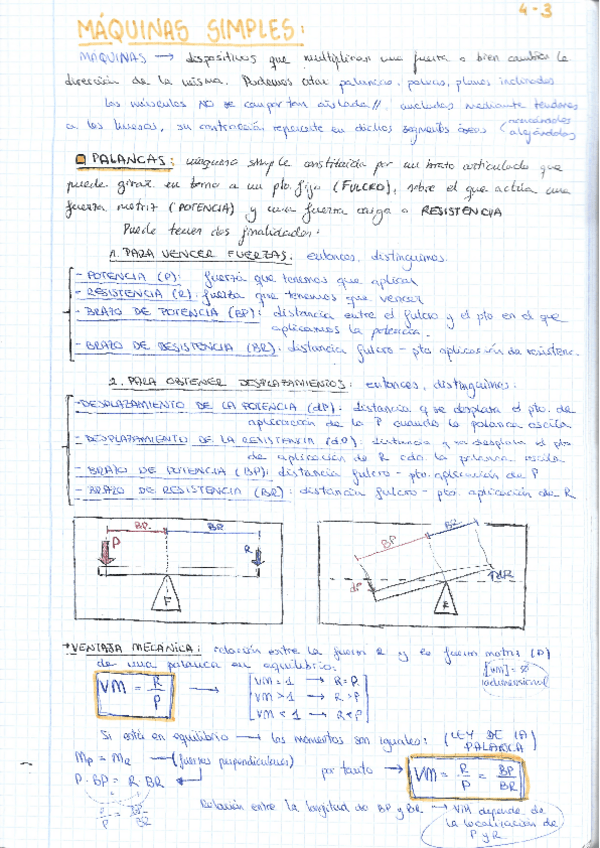 4-3
MÁQUINAS SIMPLES:
MÁQUINAS → dispositivos que multiplican una fuerza o bien cambian la
dirección de la misma. Podemos citar palancas, poleas, planos inclinados
Los músculos NO se comportan aislada//. anclados mediante tendones
a los huesos, su contracción repercute en dichos segmentos óseos (acercándolos
alejándolos
PALANCAS: máquina simple constituida por un brazo articulado que
puede girar en torno a un pto. fijo (FULCRO), sobre el que actúa una
fuerza motriz (POTENCIA) y una fuerza carga o RESISTENCIA
Puede tener dos finalidades:
1. PARA VENCER FUERZAS. entonces, distinguimos:
- POTENCIA (P): fuerza que tenemos que aplicar
- RESISTENCIA (R): fuerza que tenemos que vencer
- BRAZO DE POTENCIA (BP): distancia entre el fulcro y el pto en el que
aplicamos la potencia.
- BRAZO DE RESISTENCIA (BR): distancia fulcro - pto aplicación de resistenc.
2. PARA OBTENER DESPLAZAMIENTOS: entonces, distinguimos:
- DESPLAZAMIENTO DE LA POTENCIA (dP): distancia q se desplaza el pto. de
aplicación de la P cuando la palanca oscila
- DESPLAZAMIENTO DE LA RESISTENCIA (dR): distancia q se desplaza el pto
de aplicación de R cdo. la palanca oscila
- BRAZO DE POTENCIA (BP): distancia fulcro - pto. aplicación de P
- BRAZO DE RESISTENCIA (BR): distancia fulcro - pto. aplicación de R
BP BR
P R
F
BP BR
dP dR
R
→ VENTAJA MECÁNICA: relación entre la fuerza R y la fuerza motriz (P)
de una palanca en equilibrio.
[VM] = ∅
adimensional
VM = R/P →
VM = 1 → R = P
VM > 1 → R > P
VM < 1 → R < P
Si está en equilibrio → los momentos son iguales: (LEY DE LA
PALANCA)
MP = MR → (fuerzas perpendiculares)
P · BP = R · BR
por tanto → VM = R/P = BP/BR
R/P = BP/BR
Relación entre la longitud de BP y BR → VM depende de
la localización de
P y R.